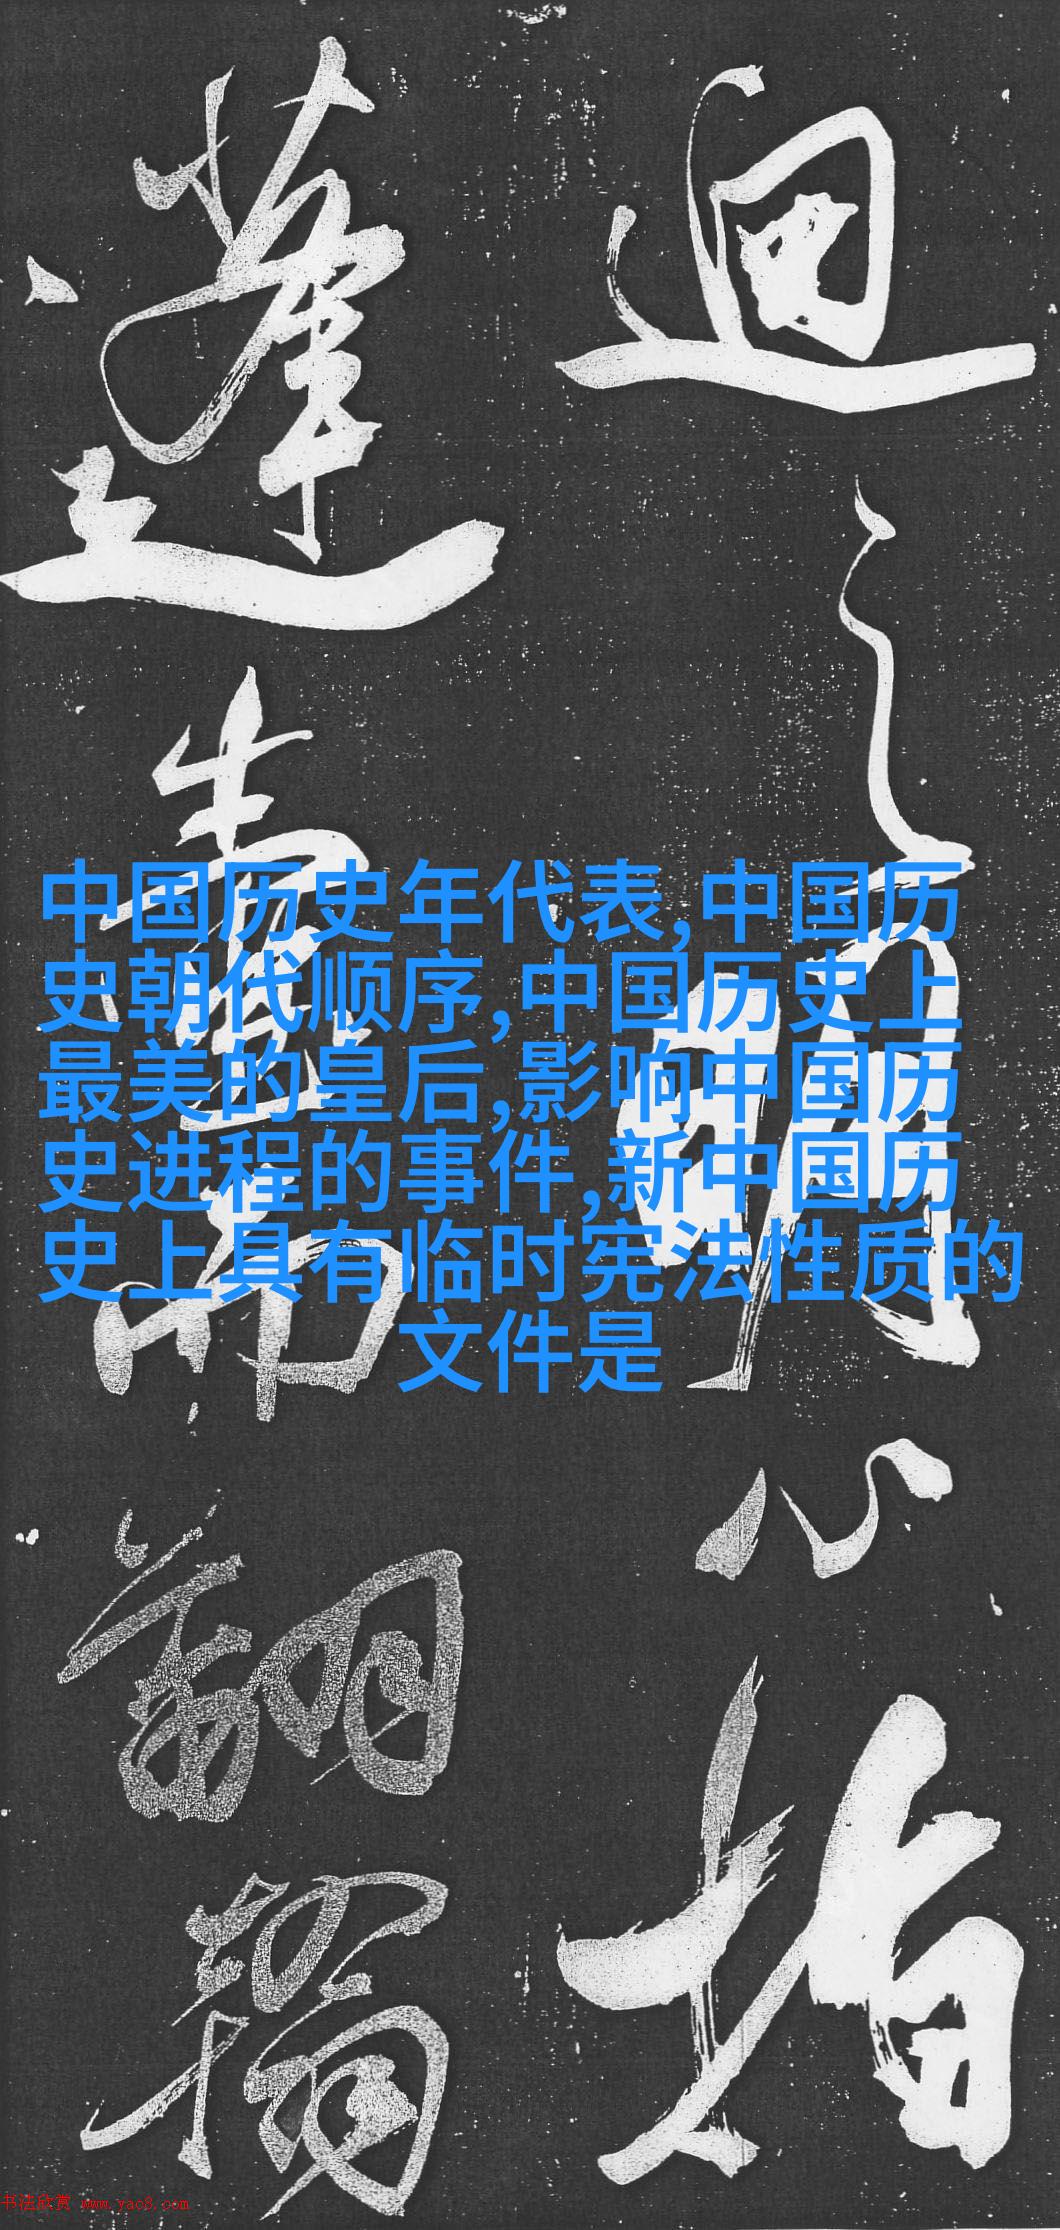 迴
之
明
心
指
蓬
書
而
翻
翰
中国历史年代表,中国历
史朝代顺序,中国历史上
最美的皇后,影响中国历
史进程的事件,新中国历
史上具有临时宪法性质的
文件是
书法欣赏 www.yac8.com